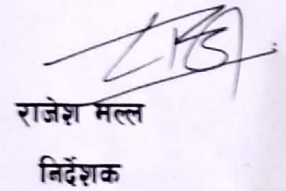 राजेश मल्ल
निर्देशक